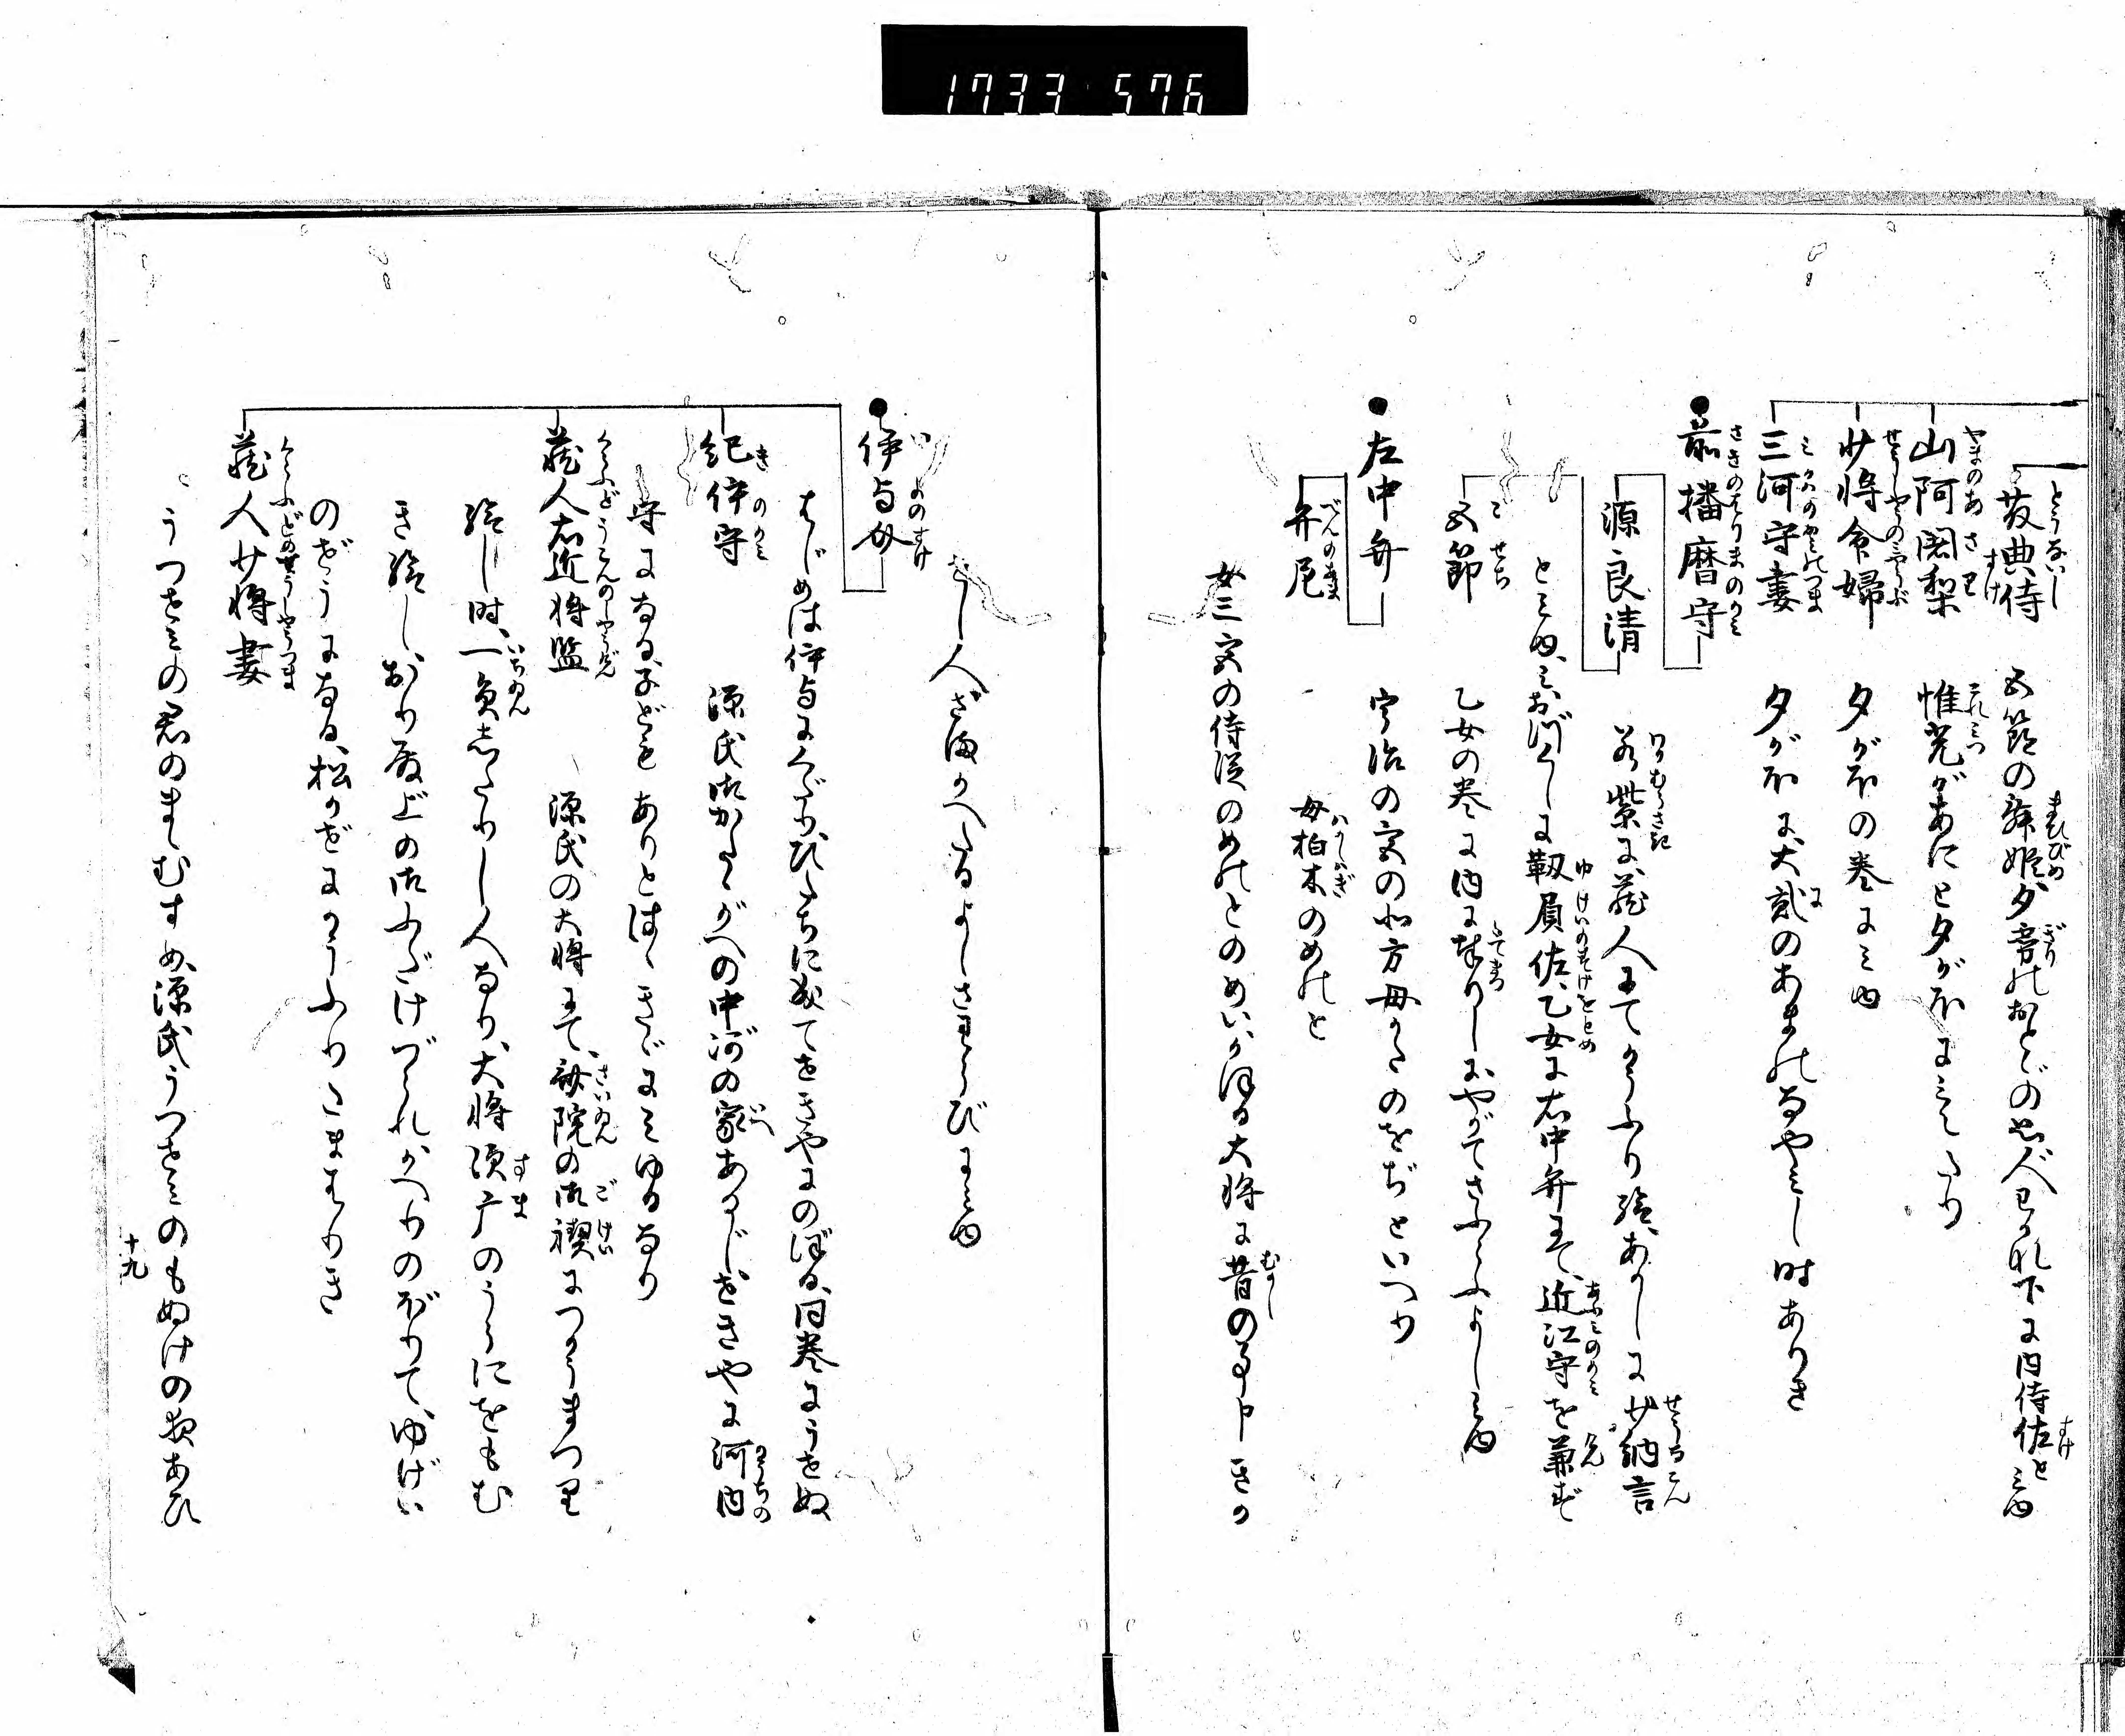 1733 576
藤典侍 五節の舞姫夕霧のおとどのおもひ人也わか菜下に内侍佐とみゆ
山阿闍梨 惟光があに也夕がほにみえたり
少将命婦 夕がほの巻にみゆ
三河守妻 夕がほに大貳のあまのなやみし時ありき
前播磨守
源良清 若紫に蔵人にてかうふり給あかしに少納言
とみゆみおつくしに靱負佐乙女に右中弁にて近江守を兼ず
五節 乙女の巻に内に奉りしにやがてさふらふよしみゆ
左中弁 宇治の宮の北方母かたのをぢといへり
弁尼 母柏木のめのと
女三宮の侍従のめのとのめいかほる大将に昔の事申しきか
らし人ざまかへたるよしさわらびにみゆ
伊与介
はじめは伊与にくだりひたちに成てせきやにのぼる同巻にうせぬ
紀伊守 源氏御かたたがへの中河の家あるじせきやに河内
守になる子どもありとはゝきゞにみゆるなり
蔵人右近将監 源氏の大将にて斎院の御禊につかうまつり
給し時一員したりし人なり大将須广のうらにをもむ
き給しおり殿上の御ふだけづられかへりのぼりてゆげい
のぜうになる松かぜにかうふりたまはりき
蔵人少将妻
うつせみの君のまゝむすめ源氏うつせみのもぬけの夜あひ
十九